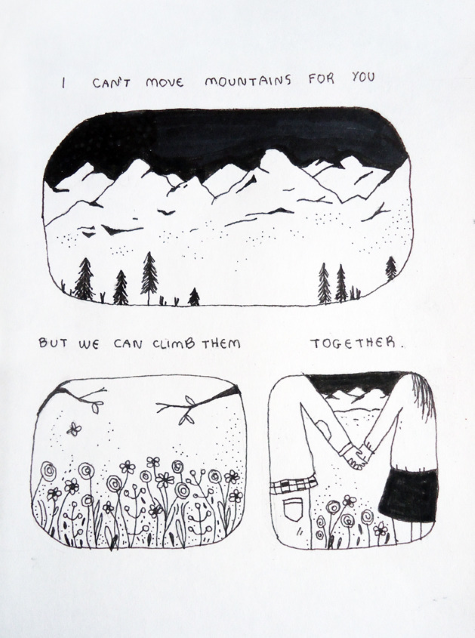 I CAN'T MOVE MOUNTAINS FOR YOU
BUT WE CAN CLIMB THEM
TOGETHER.